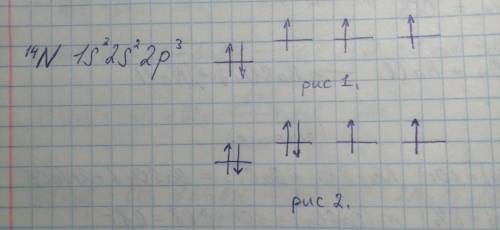 ¹⁴N 1s²2s²2p³
рис 1.
рис 2.